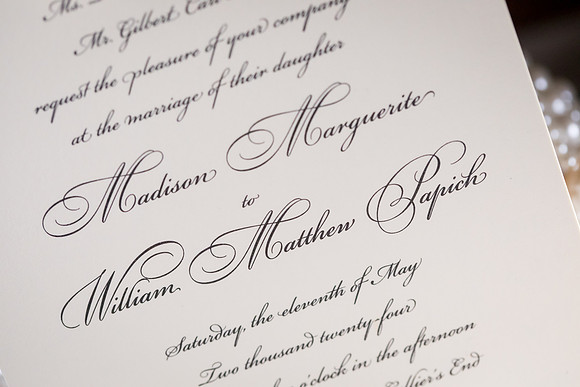 Ms.
Mr. Gilbert
request the pleasure of your company
at the marriage of their daughter
Madison Marguerite
to
William Matthew Papich
Saturday, the eleventh of May
Two thousand twenty-four
o'clock in the afternoon
End